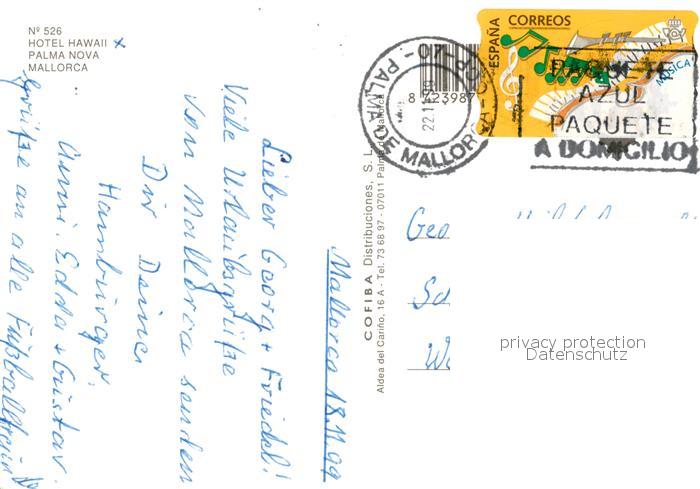 Nº 526
HOTEL HAWAII x
PALMA NOVA
MALLORCA
Mallorca 18.11.99
Lieber Georg + Friedel!
Viele Urlaubsgrüße
von Mallorca senden
Dir Deine
Hamburger
Anni. Edda + Gustav.
Grüße an alle
COFIBA Distribuciones, S. L.
Aldea del Cariño, 16 A - Tel. 73 68 97 - 07011 Palma de Mallorca
8 423987
PALMA DE MALLORCA
22.11.99
ESPAÑA
CORREOS
MÚSICA
PAQUETE
AZUL
PAQUETE
A DOMICILIO
Geo
Sc
W
privacy protection
Datenschutz